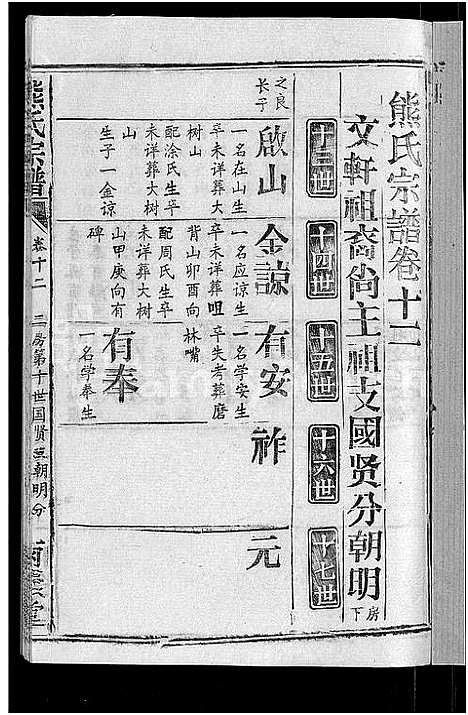 熊氏宗譜卷十二
文軒祖裔尙主祖支國贤分朝明房下
十三世
十四世
十五世
十六世
十七世
之良
长子
啟山
一名在山生
卒未详葬大
树山
配涂氏生卒
未详葬大树
山
生子一金谅
金諒
一名应谅生
卒未详葬咀
背山卯酉向
配周氏生卒
未详葬大树
山甲庚向有
碑
有安
一名学安生
卒失考葬磨
林嘴
有奉
一名学奉生
祚
元
熊氏宗譜
卷十二
二房第十世国贤至朝明分